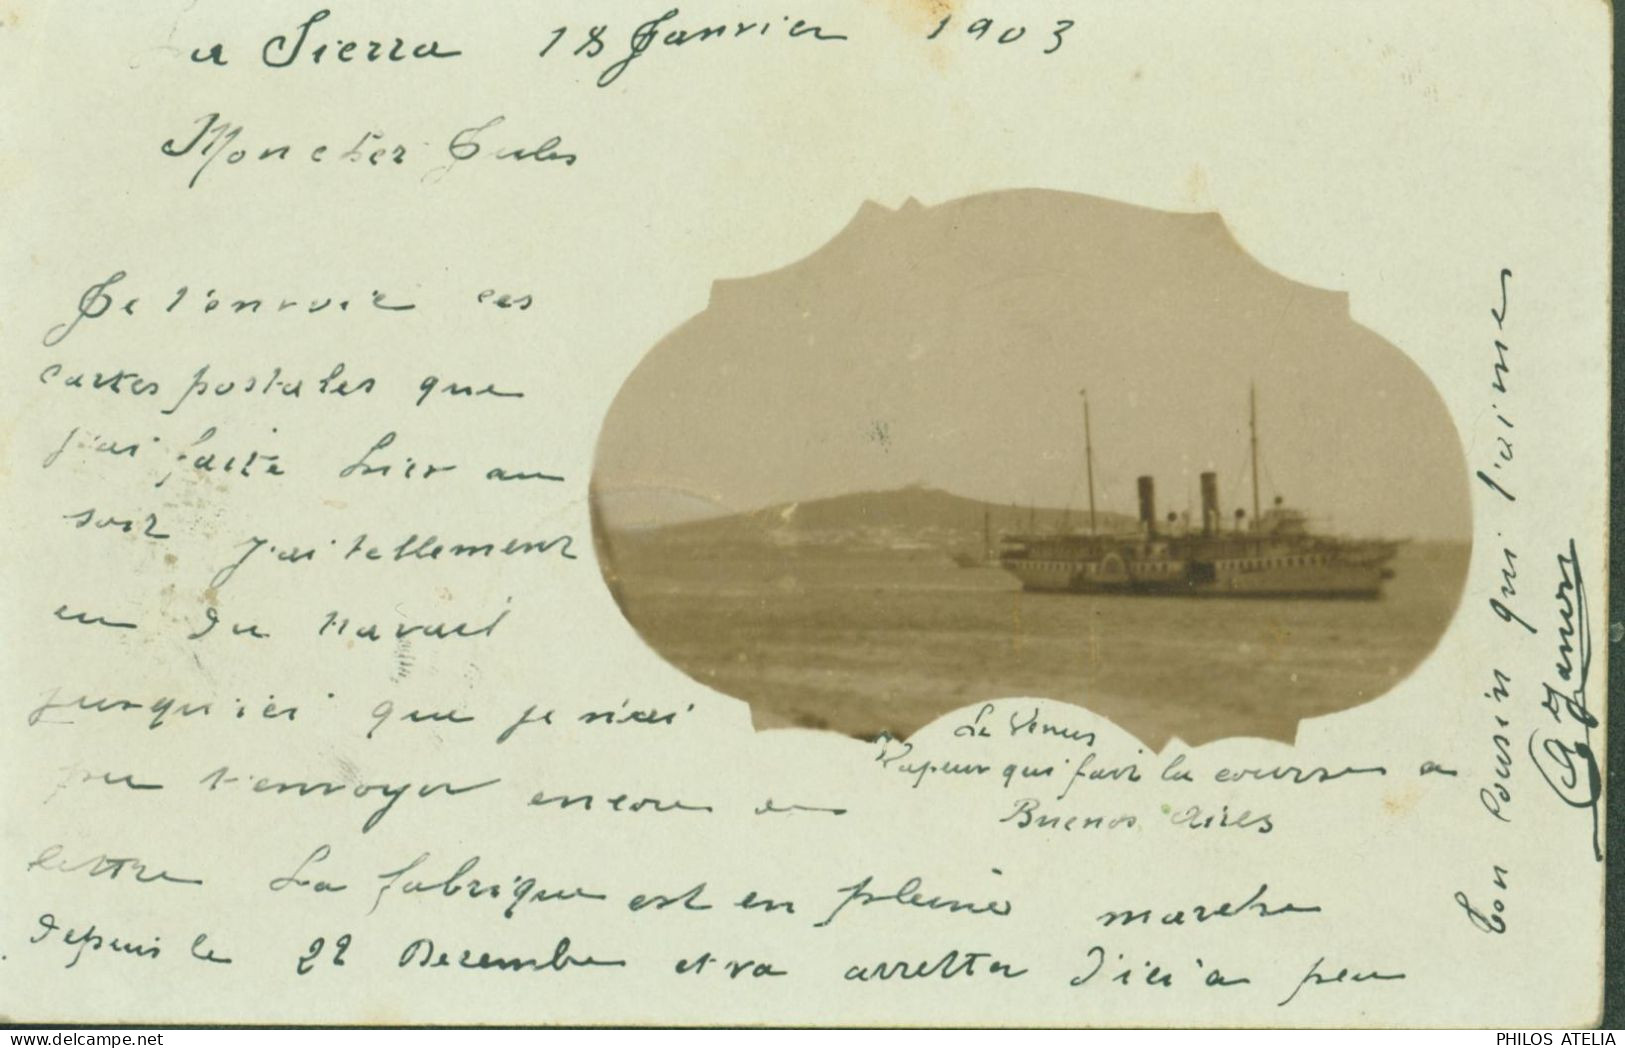 a Sierra 18 Janvier 1903
Mon cher Jules
Je t'envoie ces
cartes postales que
j'ai faite hier au
soir J'ai tellement
eu du travail
jusqu'ici que je n'ai
pu t'envoyer encore une
lettre La fabrique est en pleine marche
depuis le 22 Decembre et va arretter d'ici a peu
Le Venus
Vapeur qui fait la course a
Buenos Aires
Ton cousin qui t'aime
PHILOS ATELIA